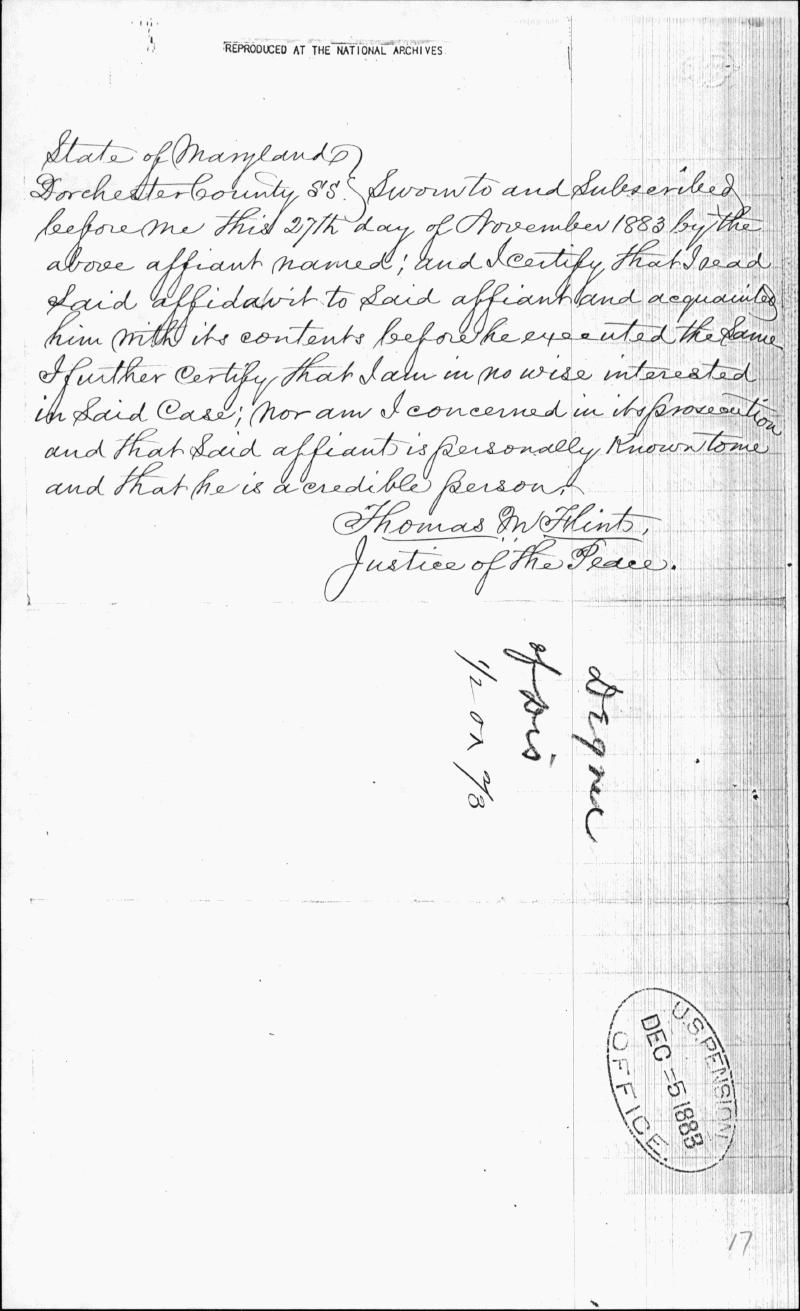 REPRODUCED AT THE NATIONAL ARCHIVES
State of Maryland
Dorchester County SS. Sworn to and Subscribed
before me this 27th day of November 1883 by the
above affiant named; and I certify that I read
Said affidavit to Said affiant and acquainted
him with its contents before he executed the Same
I further Certify that I am in no wise interested
in Said Case; nor am I concerned in its prosecution
and that Said affiant is personally Known to me
and that he is a credible person.
Thomas M Flint,
Justice of the Peace.
Degree
of Dis
1/2 or 2/3
U.S. PENSION
DEC - 5 1883
OFFICE.
17